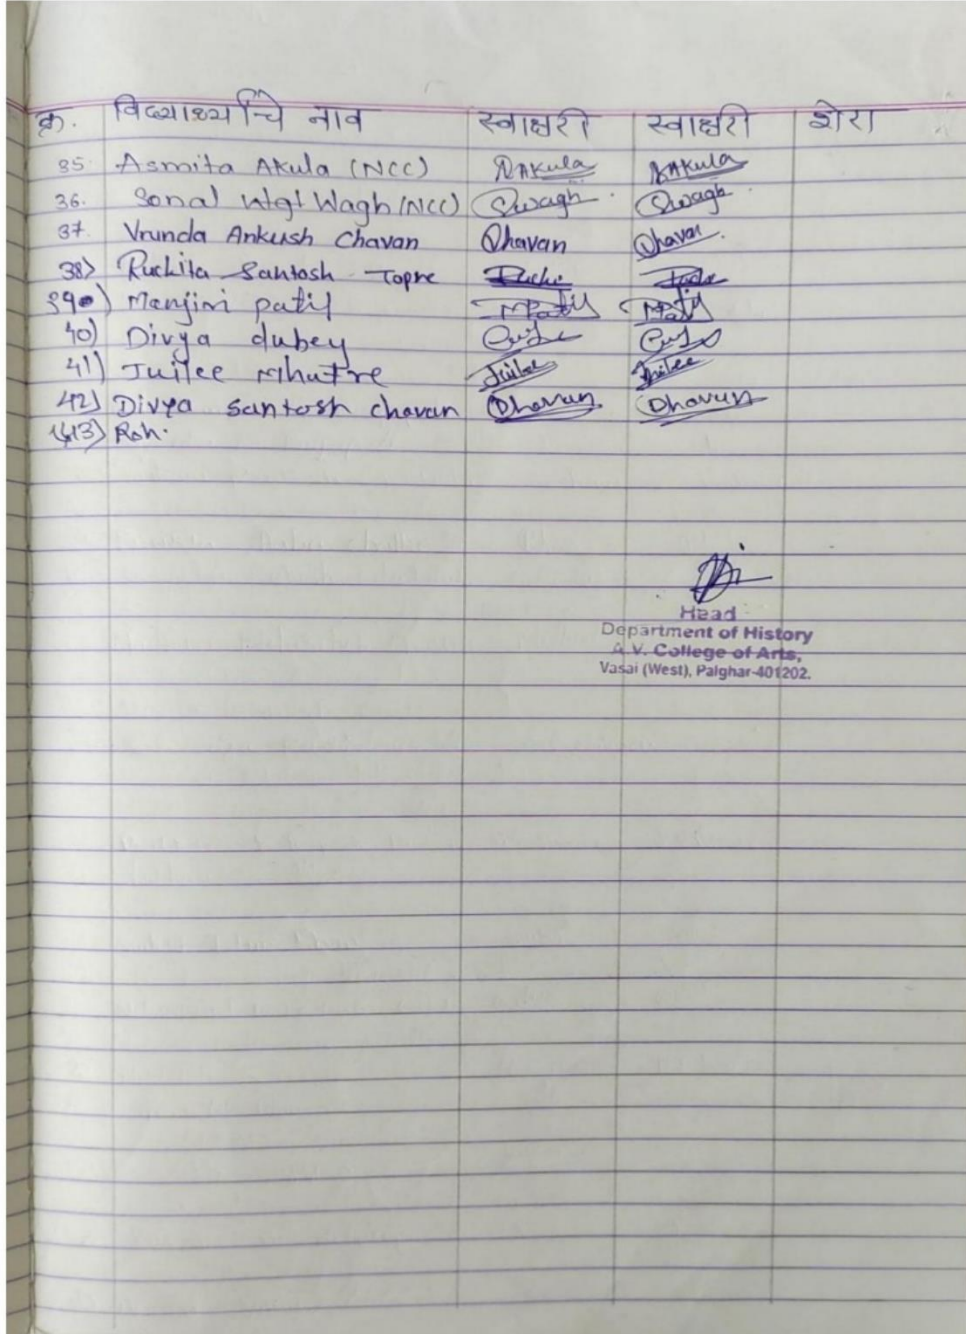 क्र. विद्यार्थ्यांचे नाव स्वाक्षरी स्वाक्षरी शेरा
35. Asmita Akula (NCC) NAkula NAkula
36. Sonal Wagh (NCC) Swagh Swagh
37. Vrunda Ankush Chavan Chavan Chavan
38) Ruchita Santosh Topre
39) Manjiri patil MPatil MPatil
40) Divya dubey
41) Juilee Mhatre Juilee Juilee
42) Divya santosh chavan Dhavan Dhavan
43) Roh.
Head
Department of History
A.V. College of Arts,
Vasai (West), Palghar-401202.